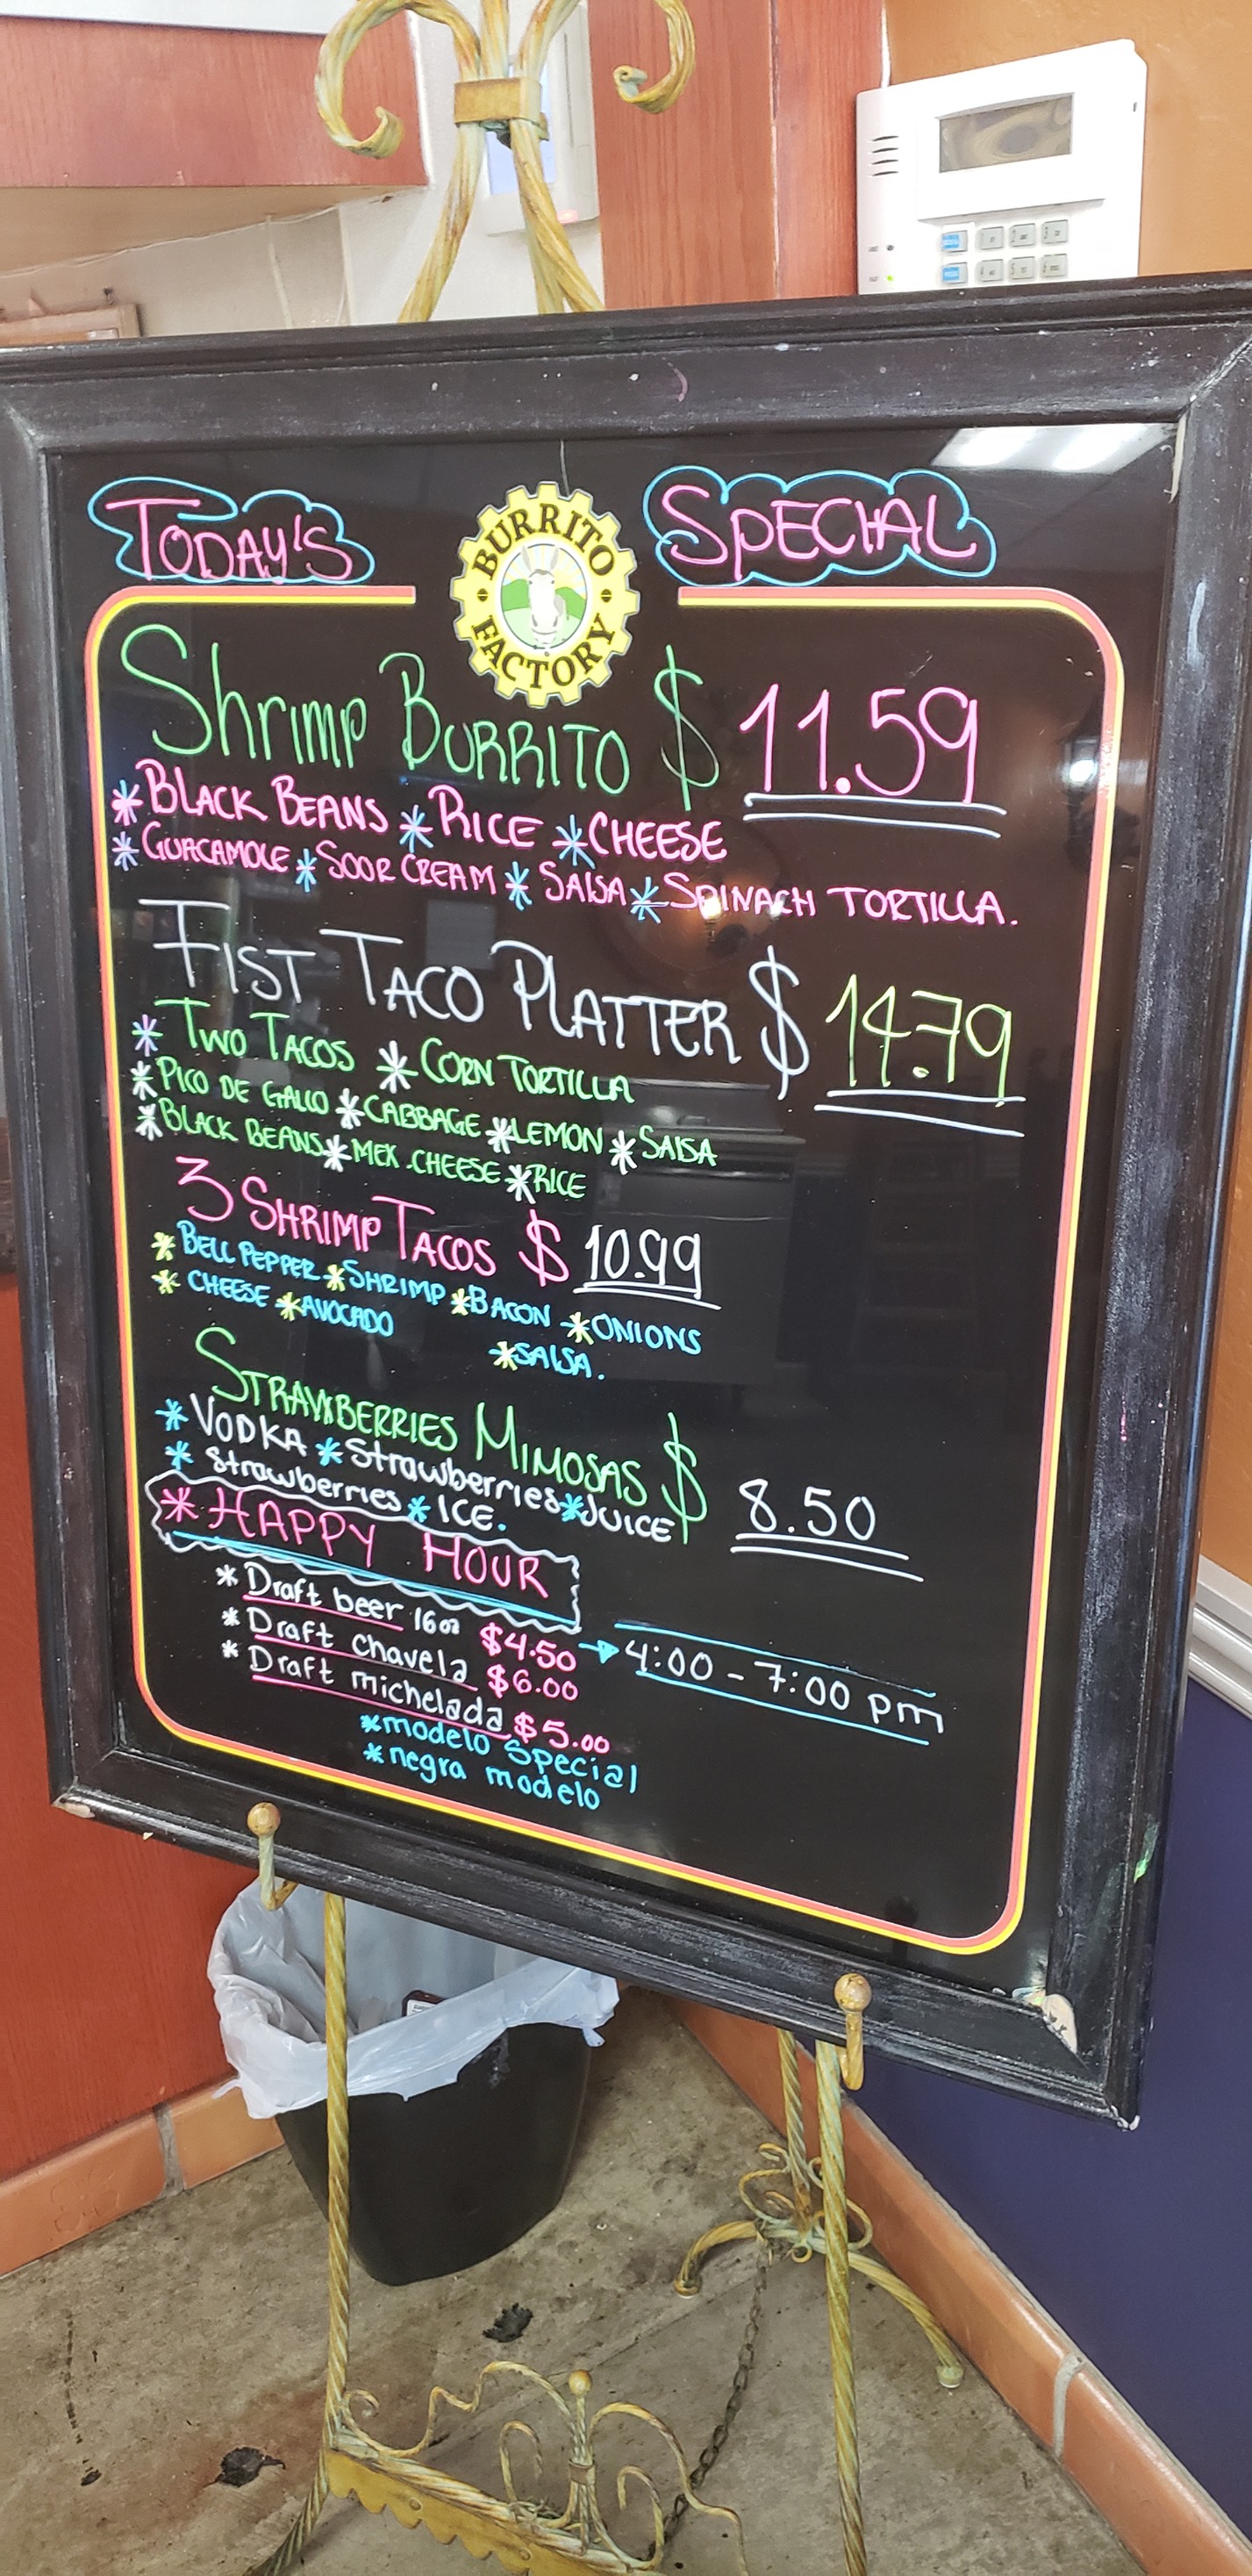 TODAY'S SPECIAL
BURRITO
FACTORY
Shrimp BURRITO $ 11.59
* BLACK BEANS * RICE * CHEESE
* GUACAMOLE * SOOR CREAM * SALSA * SPINACH TORTILLA.
FIST TACO PLATTER $ 14.79
* TWO TACOS * CORN TORTILLA
* PICO DE GALLO * CABBAGE * LEMON * SALSA
* BLACK BEANS * MEX.CHEESE * RICE
3 SHRIMP TACOS $ 10.99
* BELL PEPPER * SHRIMP * BACON * ONIONS
* CHEESE * AVOCADO
* SALSA.
STRAWBERRIES MIMOSAS $ 8.50
* VODKA * Strawberries * JUICE
* Strawberries * ICE.
* HAPPY HOUR
* Draft beer 16oz $4.50 → 4:00 - 7:00 pm
* Draft chavela $6.00
* Draft michelada $5.00
* modelo special
* negra modelo